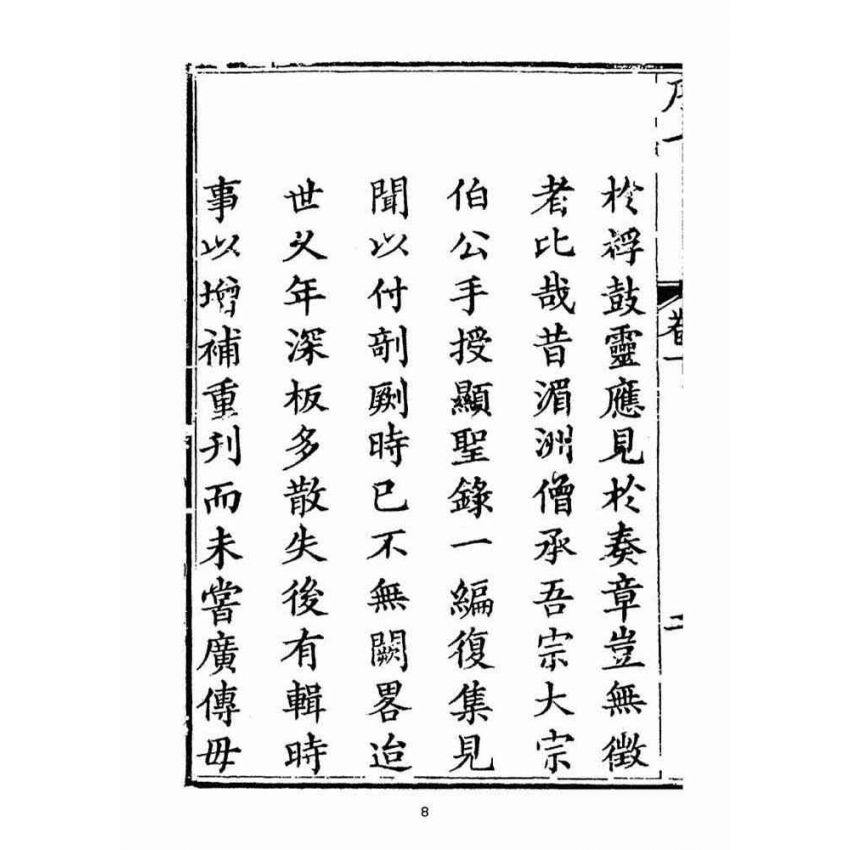 序一
卷一
二
於桴鼓靈應見於奏章豈無徵
者比哉昔湄洲僧承吾宗大宗
伯公手授顯聖錄一編復集見
聞以付剞劂時已不無闕畧迨
世久年深板多散失後有輯時
事以增補重刊而未嘗廣傳毋
8